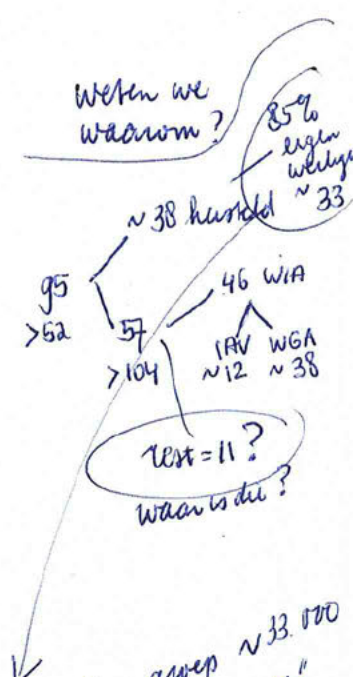 weten we
waarom?
85%
eigen
~ 33
~ 38 hersteld
95
>52
57
>104
46 WIA
IAV WGA
~12 ~38
rest = 11?
waar is die?
groep ~ 33.000